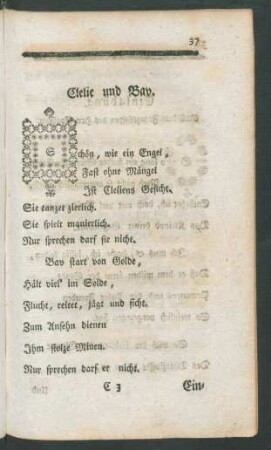 37
Clelie und Bav.
Schön, wie ein Engel,
Fast ohne Mängel
Ist Cleliens Gesicht.
Sie tanzet zierlich.
Sie spielt manierlich.
Nur sprechen darf sie nicht.
Bav starrt von Golde,
Hält viel' im Solde,
Flucht, reitet, jägt und ficht.
Zum Ansehn dienen
Ihm stolze Minen.
Nur sprechen darf er nicht.
C 3 Ein-